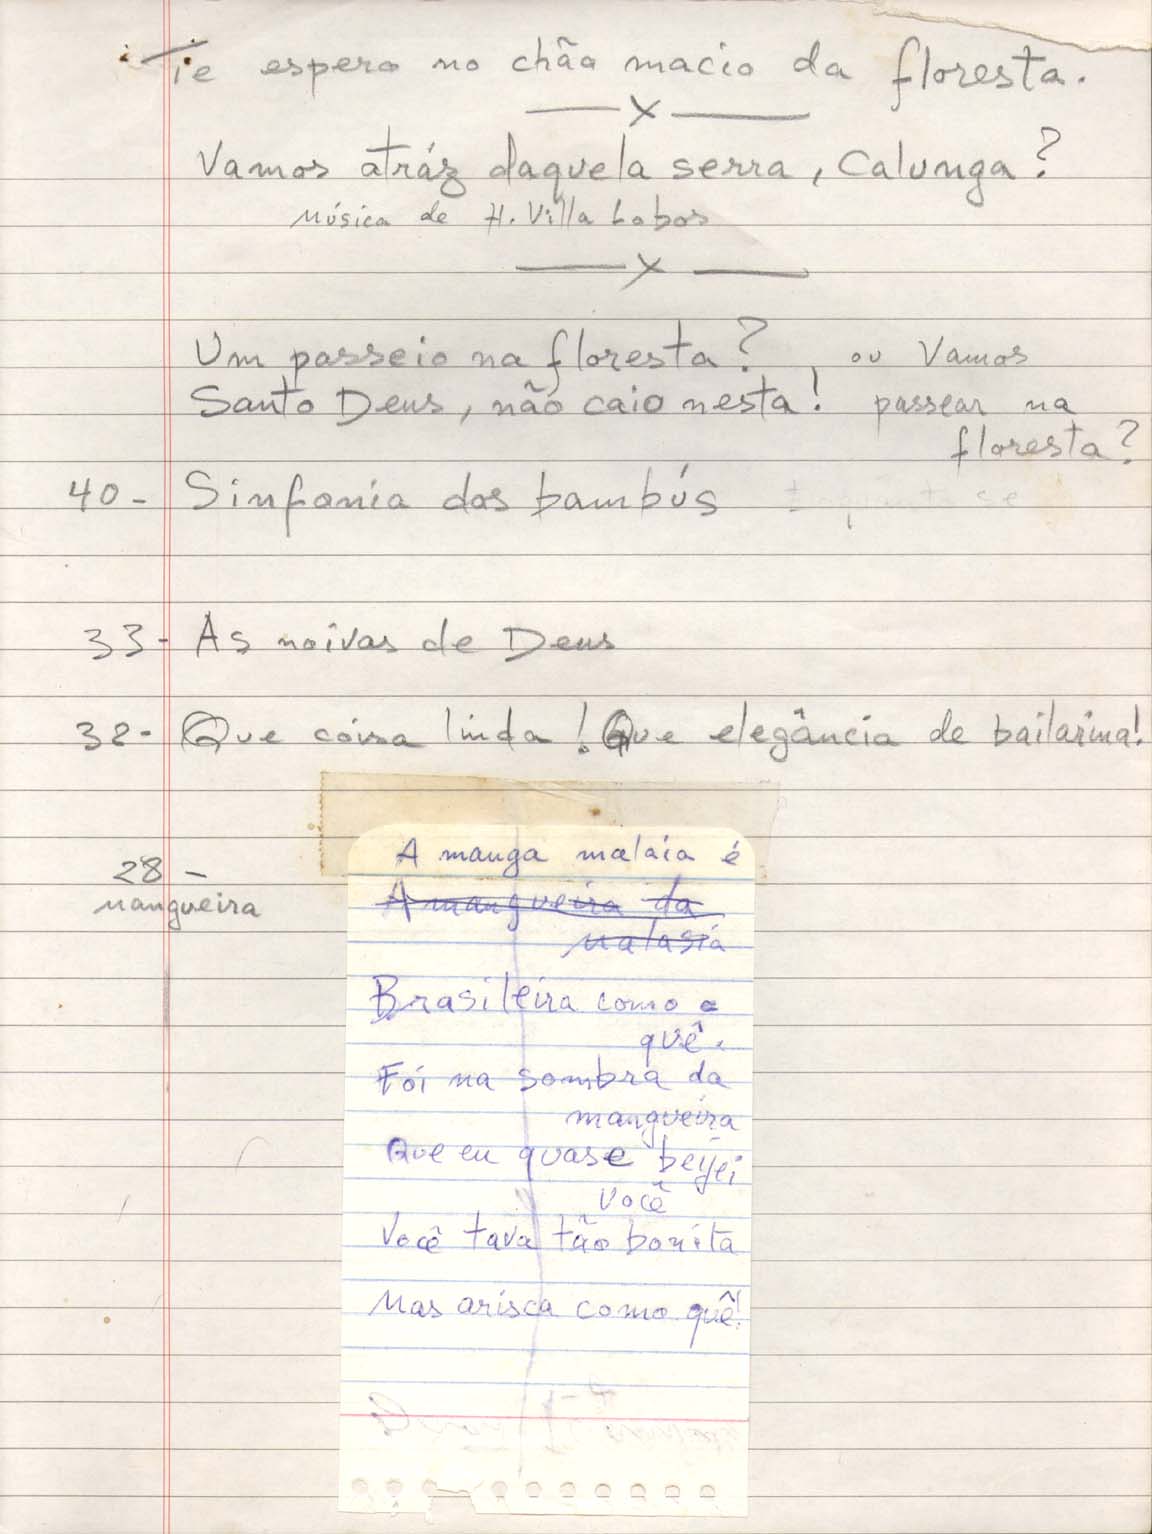 Te espero no chão macio da floresta.
x
Vamos atráz daquela serra, Calunga?
Música de H. Villa Lobos
x
Um passeio na floresta? , ou Vamos
Santo Deus, não caio nesta! passear na
floresta?
40 - Sinfonia dos bambús
33 - As noivas de Deus
32 - Que coisa linda! Que elegância de bailarina!
28 -
mangueira
A manga malaia é
A mangueira da
malasia
Brasileira como o
quê.
Foi na sombra da
mangueira
Que eu quase beijei
você
Você tava tão bonita
Mas arisca como quê!